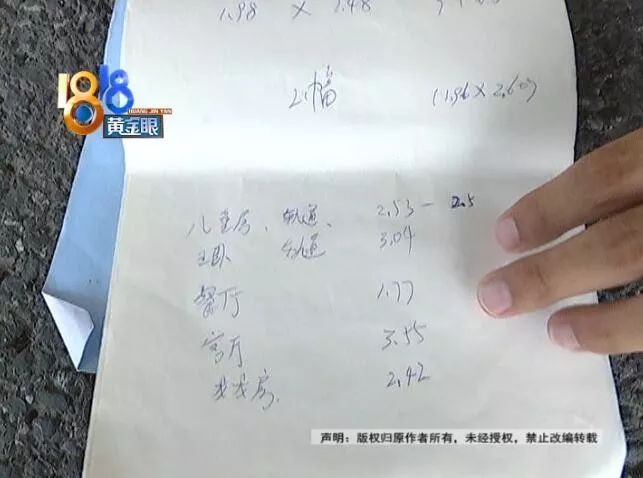 1.98 × 2.48
1818
HUANG JIN YAN
黄金眼
2幅 (1.96×2.60)
儿童房、轨道、 2.53 — 2.5
主卧 轨道 3.04
餐厅 1.77
客厅 3.55
房 2.42
声明：版权归原作者所有，未经授权，禁止改编转载